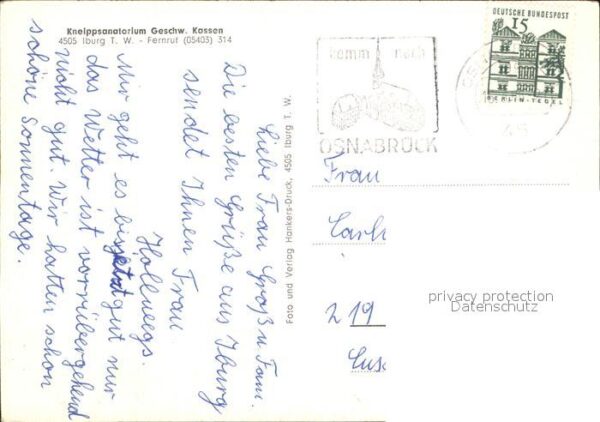 Kneippsanatorium Geschw. Kassen
4505 Iburg T. W. - Fernruf (05403) 314
Liebe Frau Groß u Fam.
Die besten Grüße aus Iburg
sendet Ihnen Frau
Hollweegs.
Mir geht es bis jetzt gut nur
das Wetter ist vorrübergehend
nicht gut. Wir hatten schon
schöne Sonnentage.
Foto und Verlag Hankers-Druck, 4505 Iburg T. W.
komm nach
OSNABRÜCK
DEUTSCHE BUNDESPOST
15
BERLIN-TEGEL
45
Frau
219
privacy protection
Datenschutz